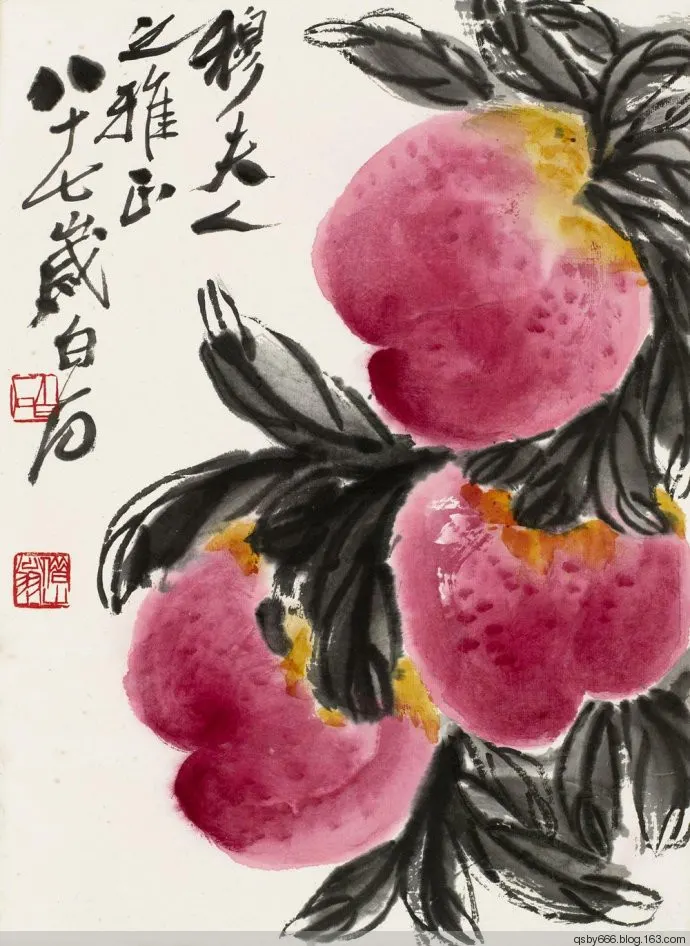 穆夫人
之雅正
八十七歲白石
白石
qsby666.blog.163.com